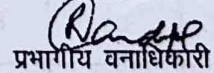 प्रभागीय वनाधिकारी